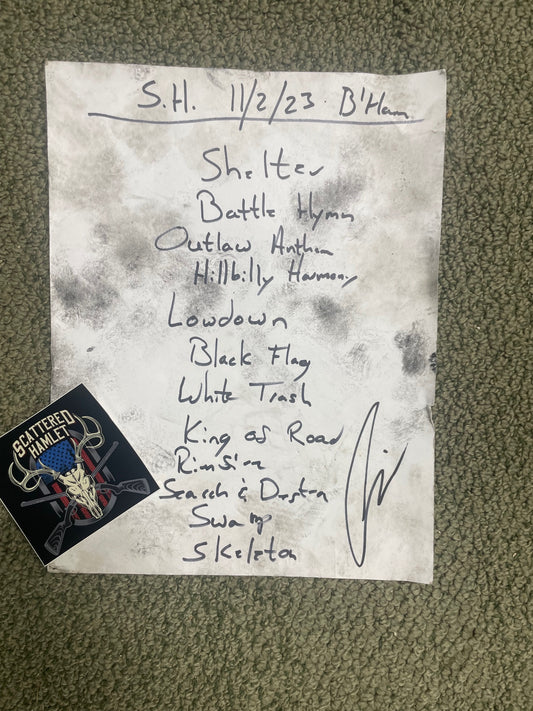 S.H. 11/2/23. B'Ham
Shelter
Battle Hymn
Outlaw Anthem
Hillbilly Harmony
Lowdown
Black Flag
White Trash
King of Road
Search & Destro
Swamp
Skeleton
SCATTERED
HAMLET